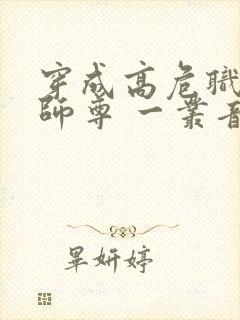 穿成高危職
師尊 一叢音
畢妍婷